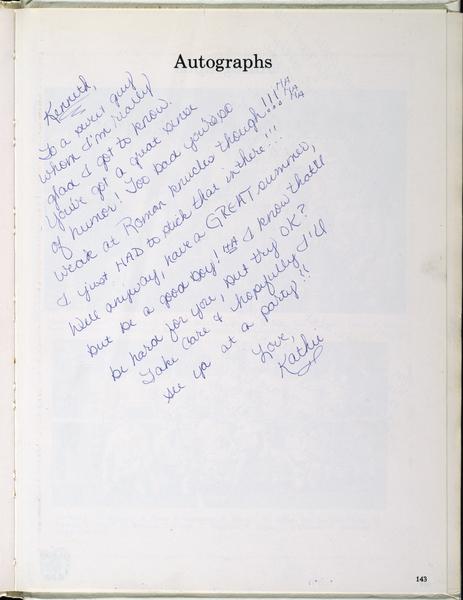 Autographs
Kenneth,
To a sweet guy
whom I'm really
glad I got to know.
You've got a great sense
of humor! Too bad you're so
weak at Roman knuckles though!!!! HA HA HA
I just HAD to stick that in there!!!
Well anyway, have a GREAT summer,
but be a good boy! HA I know that'll
be hard for you, but try OK?
Take care & hopefully I'll
see ya at a party!!
Love,
Kathie
143